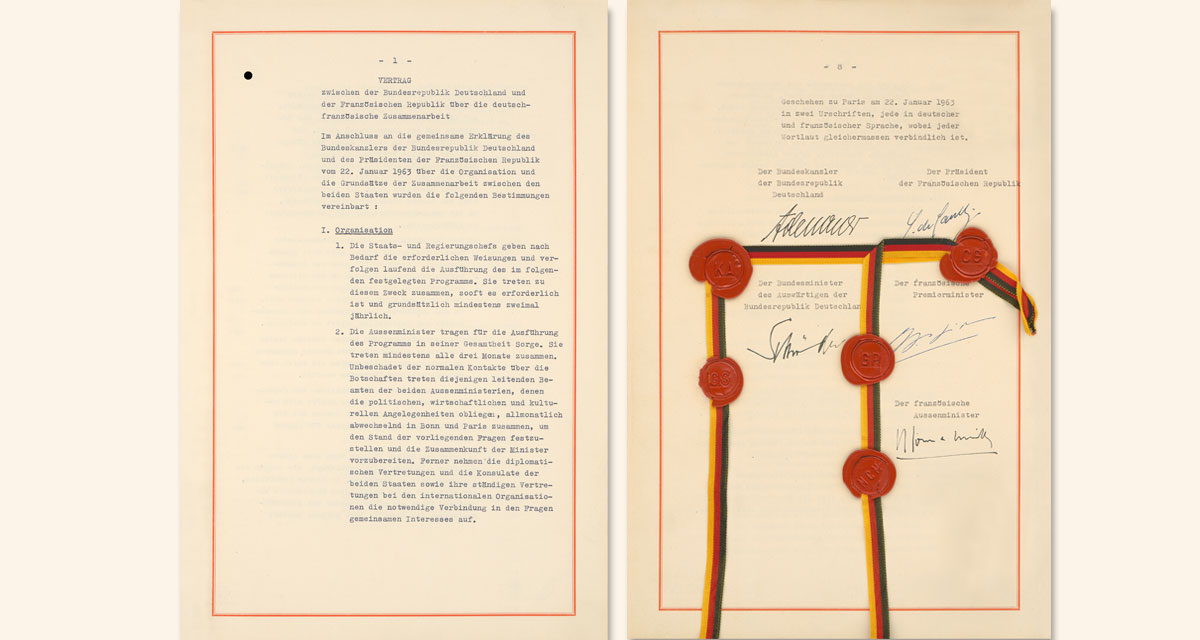 - 1 -
VERTRAG
zwischen der Bundesrepublik Deutschland und
der Französischen Republik über die deutsch-
französische Zusammenarbeit
Im Anschluss an die gemeinsame Erklärung des
Bundeskanzlers der Bundesrepublik Deutschland
und des Präsidenten der Französischen Republik
vom 22. Januar 1963 über die Organisation und
die Grundsätze der Zusammenarbeit zwischen den
beiden Staaten wurden die folgenden Bestimmungen
vereinbart :
I. Organisation
1. Die Staats- und Regierungschefs geben nach
Bedarf die erforderlichen Weisungen und ver-
folgen laufend die Ausführung des im folgen-
den festgelegten Programms. Sie treten zu
diesem Zweck zusammen, sooft es erforderlich
ist und grundsätzlich mindestens zweimal
jährlich.
2. Die Aussenminister tragen für die Ausführung
des Programms in seiner Gesamtheit Sorge. Sie
treten mindestens alle drei Monate zusammen.
Unbeschadet der normalen Kontakte über die
Botschaften treten diejenigen leitenden Be-
amten der beiden Aussenministerien, denen
die politischen, wirtschaftlichen und kultu-
rellen Angelegenheiten obliegen, allmonatlich
abwechselnd in Bonn und Paris zusammen, um
den Stand der vorliegenden Fragen festzu-
stellen und die Zusammenkunft der Minister
vorzubereiten. Ferner nehmen die diplomati-
schen Vertretungen und die Konsulate der
beiden Staaten sowie ihre ständigen Vertre-
tungen bei den internationalen Organisatio-
nen die notwendige Verbindung in den Fragen
gemeinsamen Interesses auf.
- 8 -
Geschehen zu Paris am 22. Januar 1963
in zwei Urschriften, jede in deutscher
und französischer Sprache, wobei jeder
Wortlaut gleichermassen verbindlich ist.
Der Bundeskanzler
der Bundesrepublik
Deutschland
Der Präsident
der Französischen Republik
Adenauer
Der Bundesminister
des Auswärtigen der
Bundesrepublik Deutschlan
Der französische
Premierminister
SP
Der französische
Aussenminister